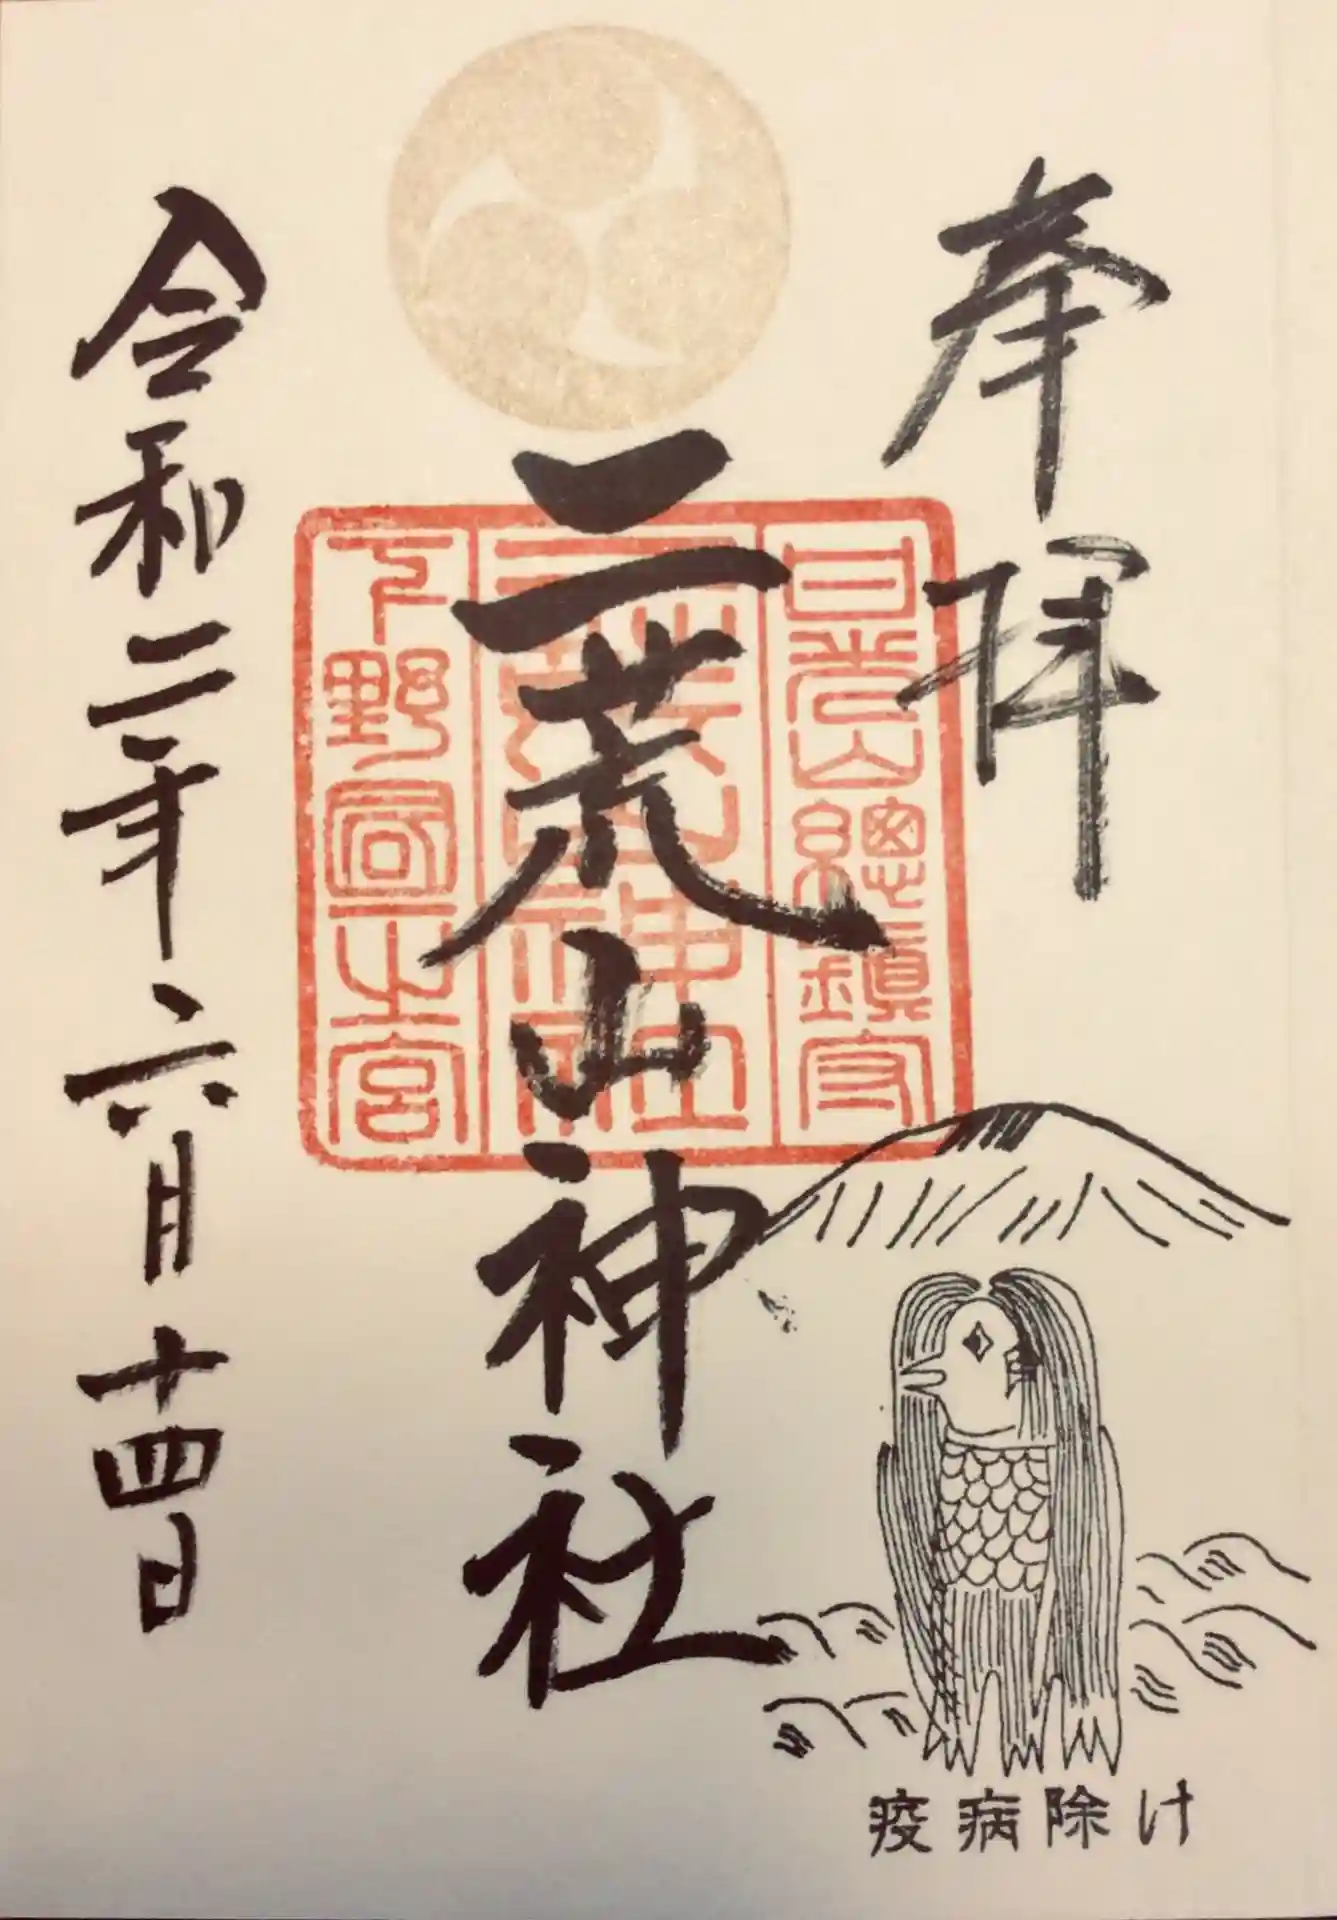 奉拝
日光山總鎮守
二荒山神社
二荒山神社
下野國一之宮
令和二年六月十四日
疫病除け